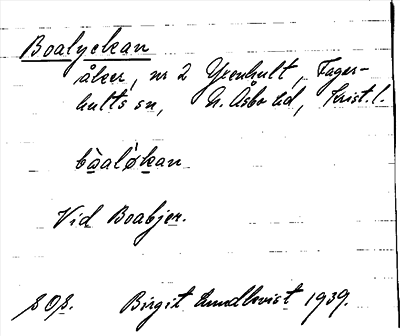 Boalyckan
åker, nr 2 Yxenhult, Fager-
hults sn, N. Åsbo hd, Krist. l.
Vid Boabjer.
Birgit Lundkvist 1939.